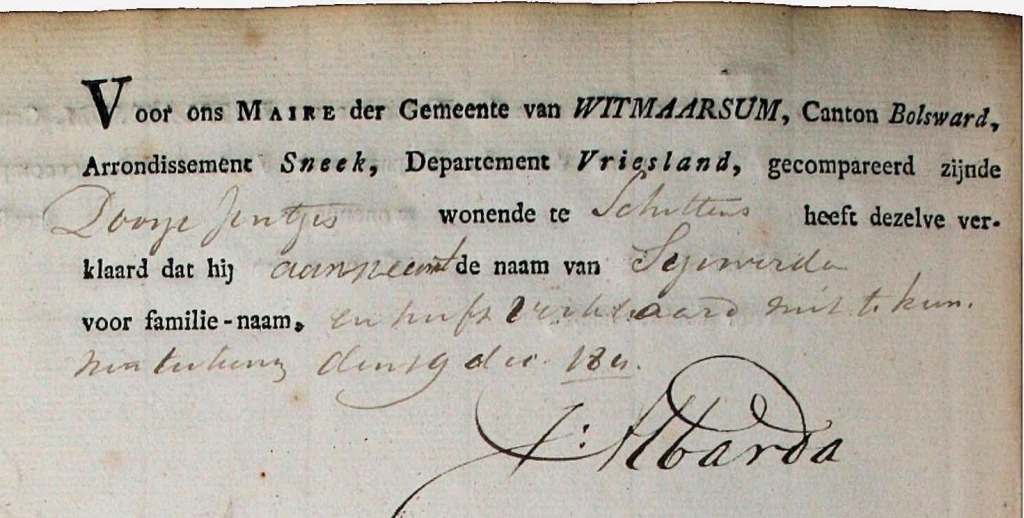 Voor ons MAIRE der Gemeente van WITMAARSUM, Canton Bolsward,
Arrondissement Sneek, Departement Vriesland, gecompareerd zijnde
Douwe Jentjes wonende te Schettens heeft dezelve ver-
klaard dat hij aanneemt de naam van
voor familie-naam, en heeft verklaard niet te kun-
nen tekenen den 19 dec. 1811.
Albarda